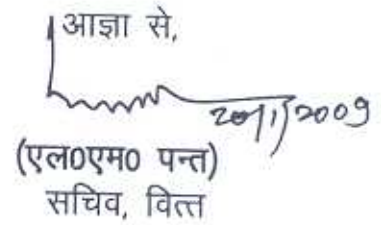 आज्ञा से,
20/1/2009
(एल0एम0 पन्त)
सचिव, वित्त